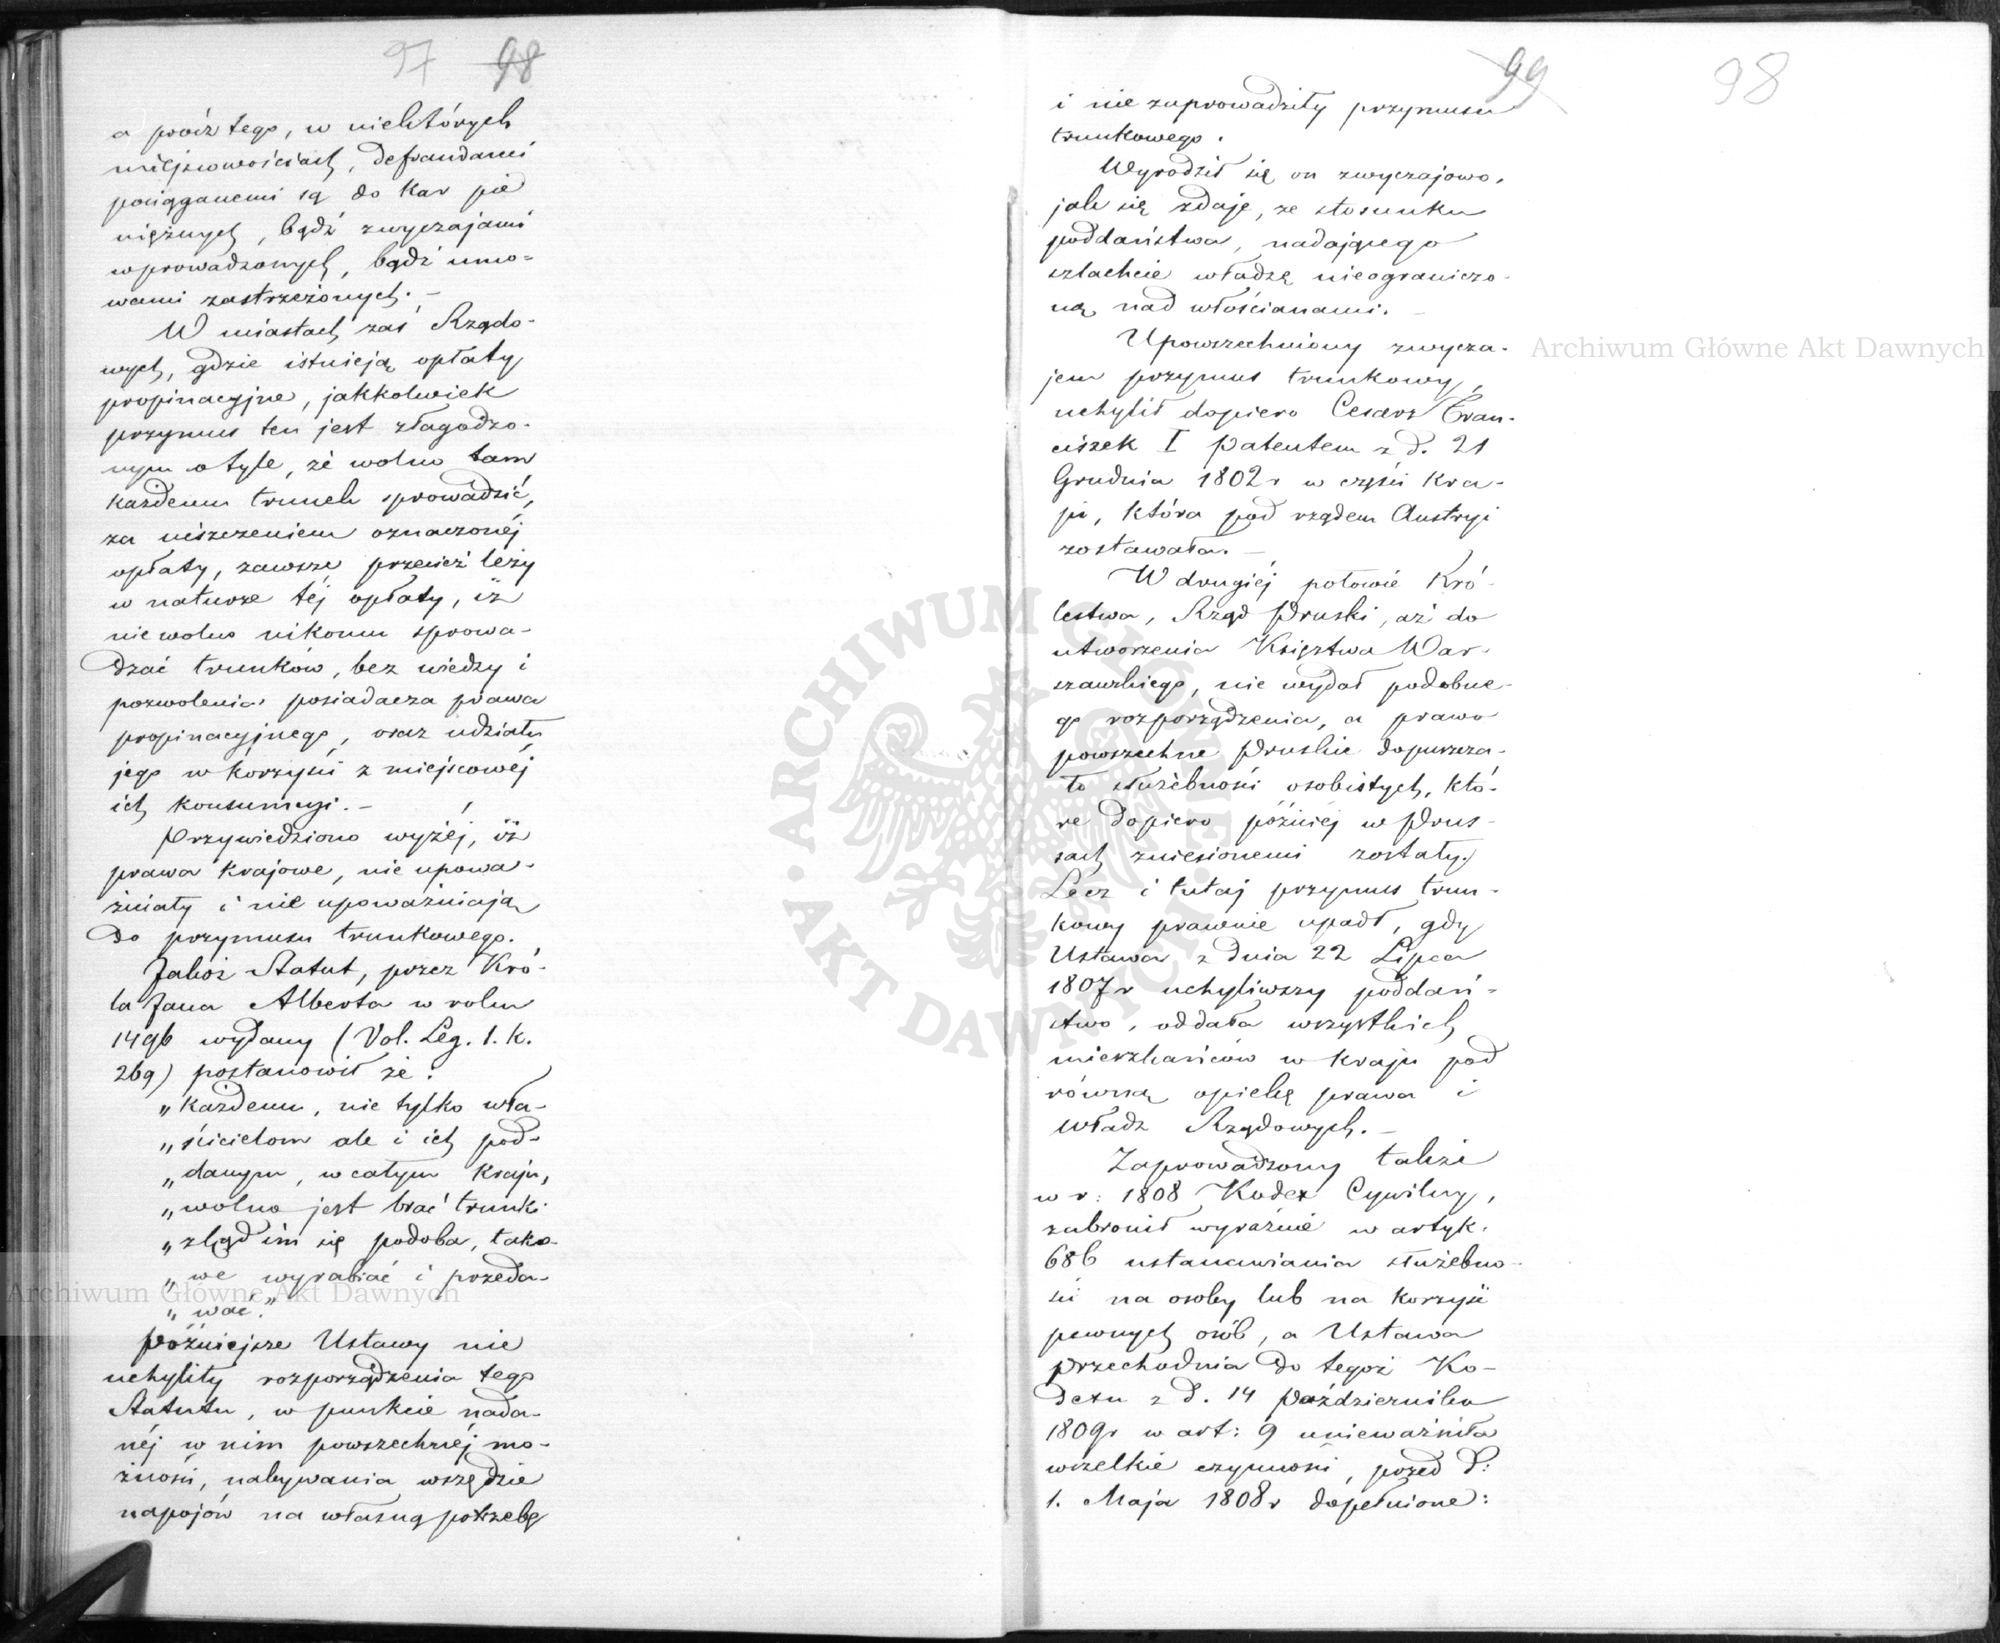 97 98
a prócz tego, w niektórych
miejscowościach, defraudanci
pociąganemi są do kar pie
niężnych, bądź zwyczajami
wprowadzonych, bądź umo-
wami zastrzeżonych. –
W miastach zaś Rządo-
wych, gdzie istnieją opłaty
propinacyjne, jakkolwiek
przymus ten jest złagodzo-
nym o tyle, że wolno tam
każdemu trunek sprowadzić,
za uiszczeniem oznaczonéj
opłaty, zawsze przecież leży
w naturze téj opłaty, iż
niewolno nikomu sprowa-
dzać trunków, bez wiedzy i
pozwolenia posiadacza prawa
propinacyjnego, oraz udziału
jego w korzyści z miejscowéj
ich konsumcyi. –
Przywiedziono wyżéj, iż
prawa krajowe, nie upowa-
żniały i nie upoważniają
do przymusu trunkowego.
Jakoż Statut, przez Kró-
la Jana Alberta w roku
1496 wydany (Vol. Leg. 1. k.
269) postanowił że:
„każdemu, nie tylko wła-
„ścicielom ale i ich pod-
„danym, w całym kraju,
„wolno jest brać trunki
„zkąd im się podoba, tako-
„we wyrabiać i przeda-
„wać.”
Późniejsze Ustawy nie
uchyliły rozporządzenia tego
Statutu, w punkcie nada-
néj w nim powszechnéj mo-
żności, nabywania wszędzie
napojów na własną potrzebę
99 98
i nie zaprowadziły przymusu
trunkowego.
Wyrodził się on zwyczajowo,
jak się zdaje, ze stosunku
poddaństwa, nadającego
szlachcie władzę nieograniczo-
ną nad włościanami. –
Upowszechniony zwycza-
jem przymus trunkowy,
uchylił dopiero Cesarz Fran-
ciszek I patentem z d. 21
Grudnia 1802 r w części kra-
ju, która pod rządem Austryi
zostawała. –
W drugiéj połowie Kró-
lestwa, Rząd Pruski, aż do
utworzenia Księztwa War-
szawskiego, nie wydał podobne-
go rozporządzenia, a prawo
powszechne Pruskie dopuszcza-
ło służebności osobistych, któ-
re dopiero późniéj w Prus-
sach zniesionemi zostały.
Lecz i tutaj przymus trun-
kowy prawnie upadł, gdy
Ustawa z dnia 22 Lipca
1807 r uchyliwszy poddań-
stwo, oddała wszystkich
mieszkańców w kraju pod
równą opiekę prawa i
władz Rządowych. –
Zaprowadzony także
w r: 1808 Kodex Cywilny,
zabronił wyraźnie w artyk.
686 ustanawiania służebno-
ści na osoby lub na korzyść
pewnych osób, a Ustawa
przechodnia do tegoż Ko-
dexu z d. 14 Października
1809 r w art: 9 unieważniła
wszelkie czynności, przed d:
1. Maja 1808 r dopełnione:
Archiwum Główne Akt Dawnych
Archiwum Główne Akt Dawnych
ARCHIWUM GŁÓWNE AKT DAWNYCH